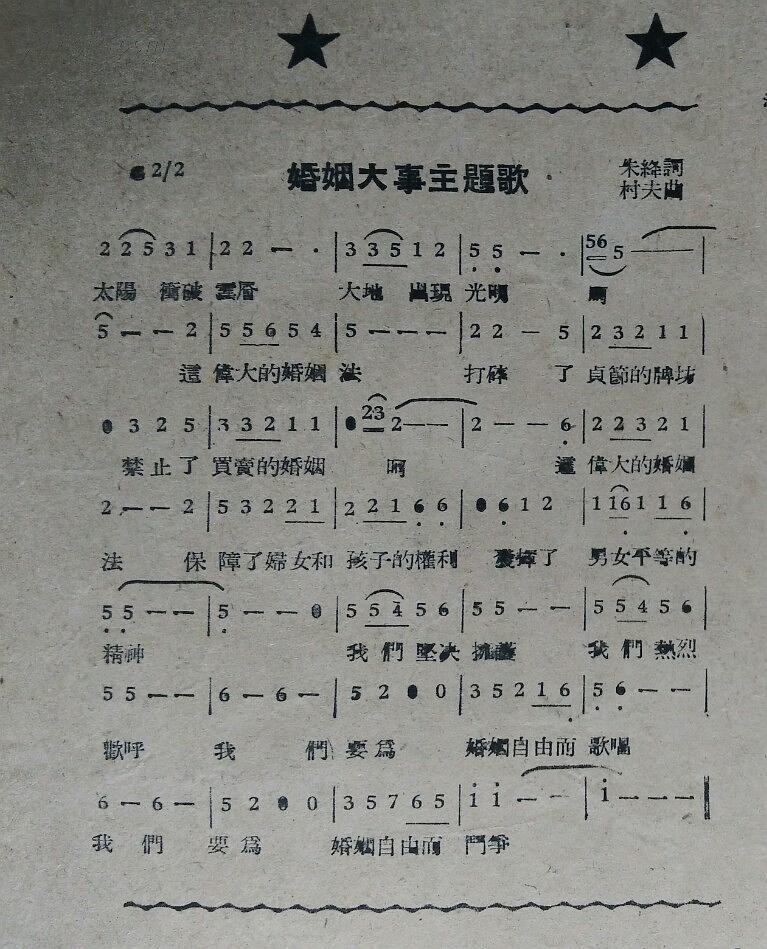 2/2 婚姻大事主題歌 朱絳詞
村夫曲
2 2 5 3 1 | 2 2 — · | 3 3 5 1 2 | 5 5 — · | 56 5 — |
太陽 衝破 雲層 大地 出現 光明 啊
5 — — 2 | 5 5 6 5 4 | 5 — — — | 2 2 — 5 | 2 3 2 1 1 |
這 偉大的婚姻 法 打碎 了 貞節的牌坊
0 3 2 5 | 3 3 2 1 1 | 0 23 2 — — | 2 — — 6 | 2 2 3 2 1 |
禁止了 買賣的婚姻 啊 這 偉大的婚姻
2 — — 2 | 5 3 2 2 1 | 2 2 1 6 6 | 0 6 1 2 | 1 16 1 1 6 |
法 保 障了婦女和 孩子的權利 發揮了 男女平等的
5 5 — — | 5 — — 0 | 5 5 4 5 6 | 5 5 — — | 5 5 4 5 6 |
精神 我們 堅决 擁護 我們 熱烈
5 5 — — | 6 — 6 — | 5 2 0 0 | 3 5 2 1 6 | 5 6 — — |
歡呼 我 們 要爲 婚姻自由而 歌唱
6 — 6 — | 5 2 0 0 | 3 5 7 6 5 | i i — — | i — — — ‖
我 們 要爲 婚姻自由而 鬥爭